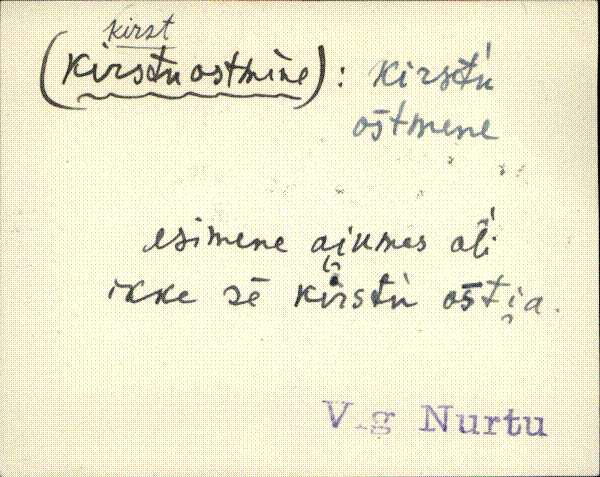 kirst
(kirstu ostmine): kirstù
ostmene
esimene ai̯umes oĺi
ikke sē kirstù osti̯a.
V.g Nurtu